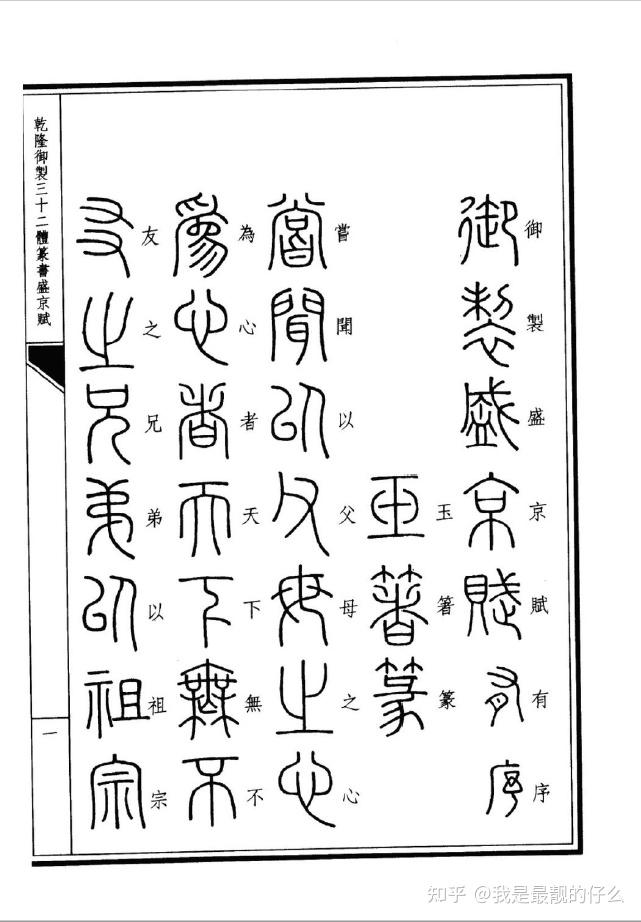 御製盛京賦有序
玉箸篆
嘗聞以父母之心
為心者天下無不
友之兄弟以祖宗
乾隆御製三十二體篆書盛京賦
一
知乎 @我是最靓的仔么